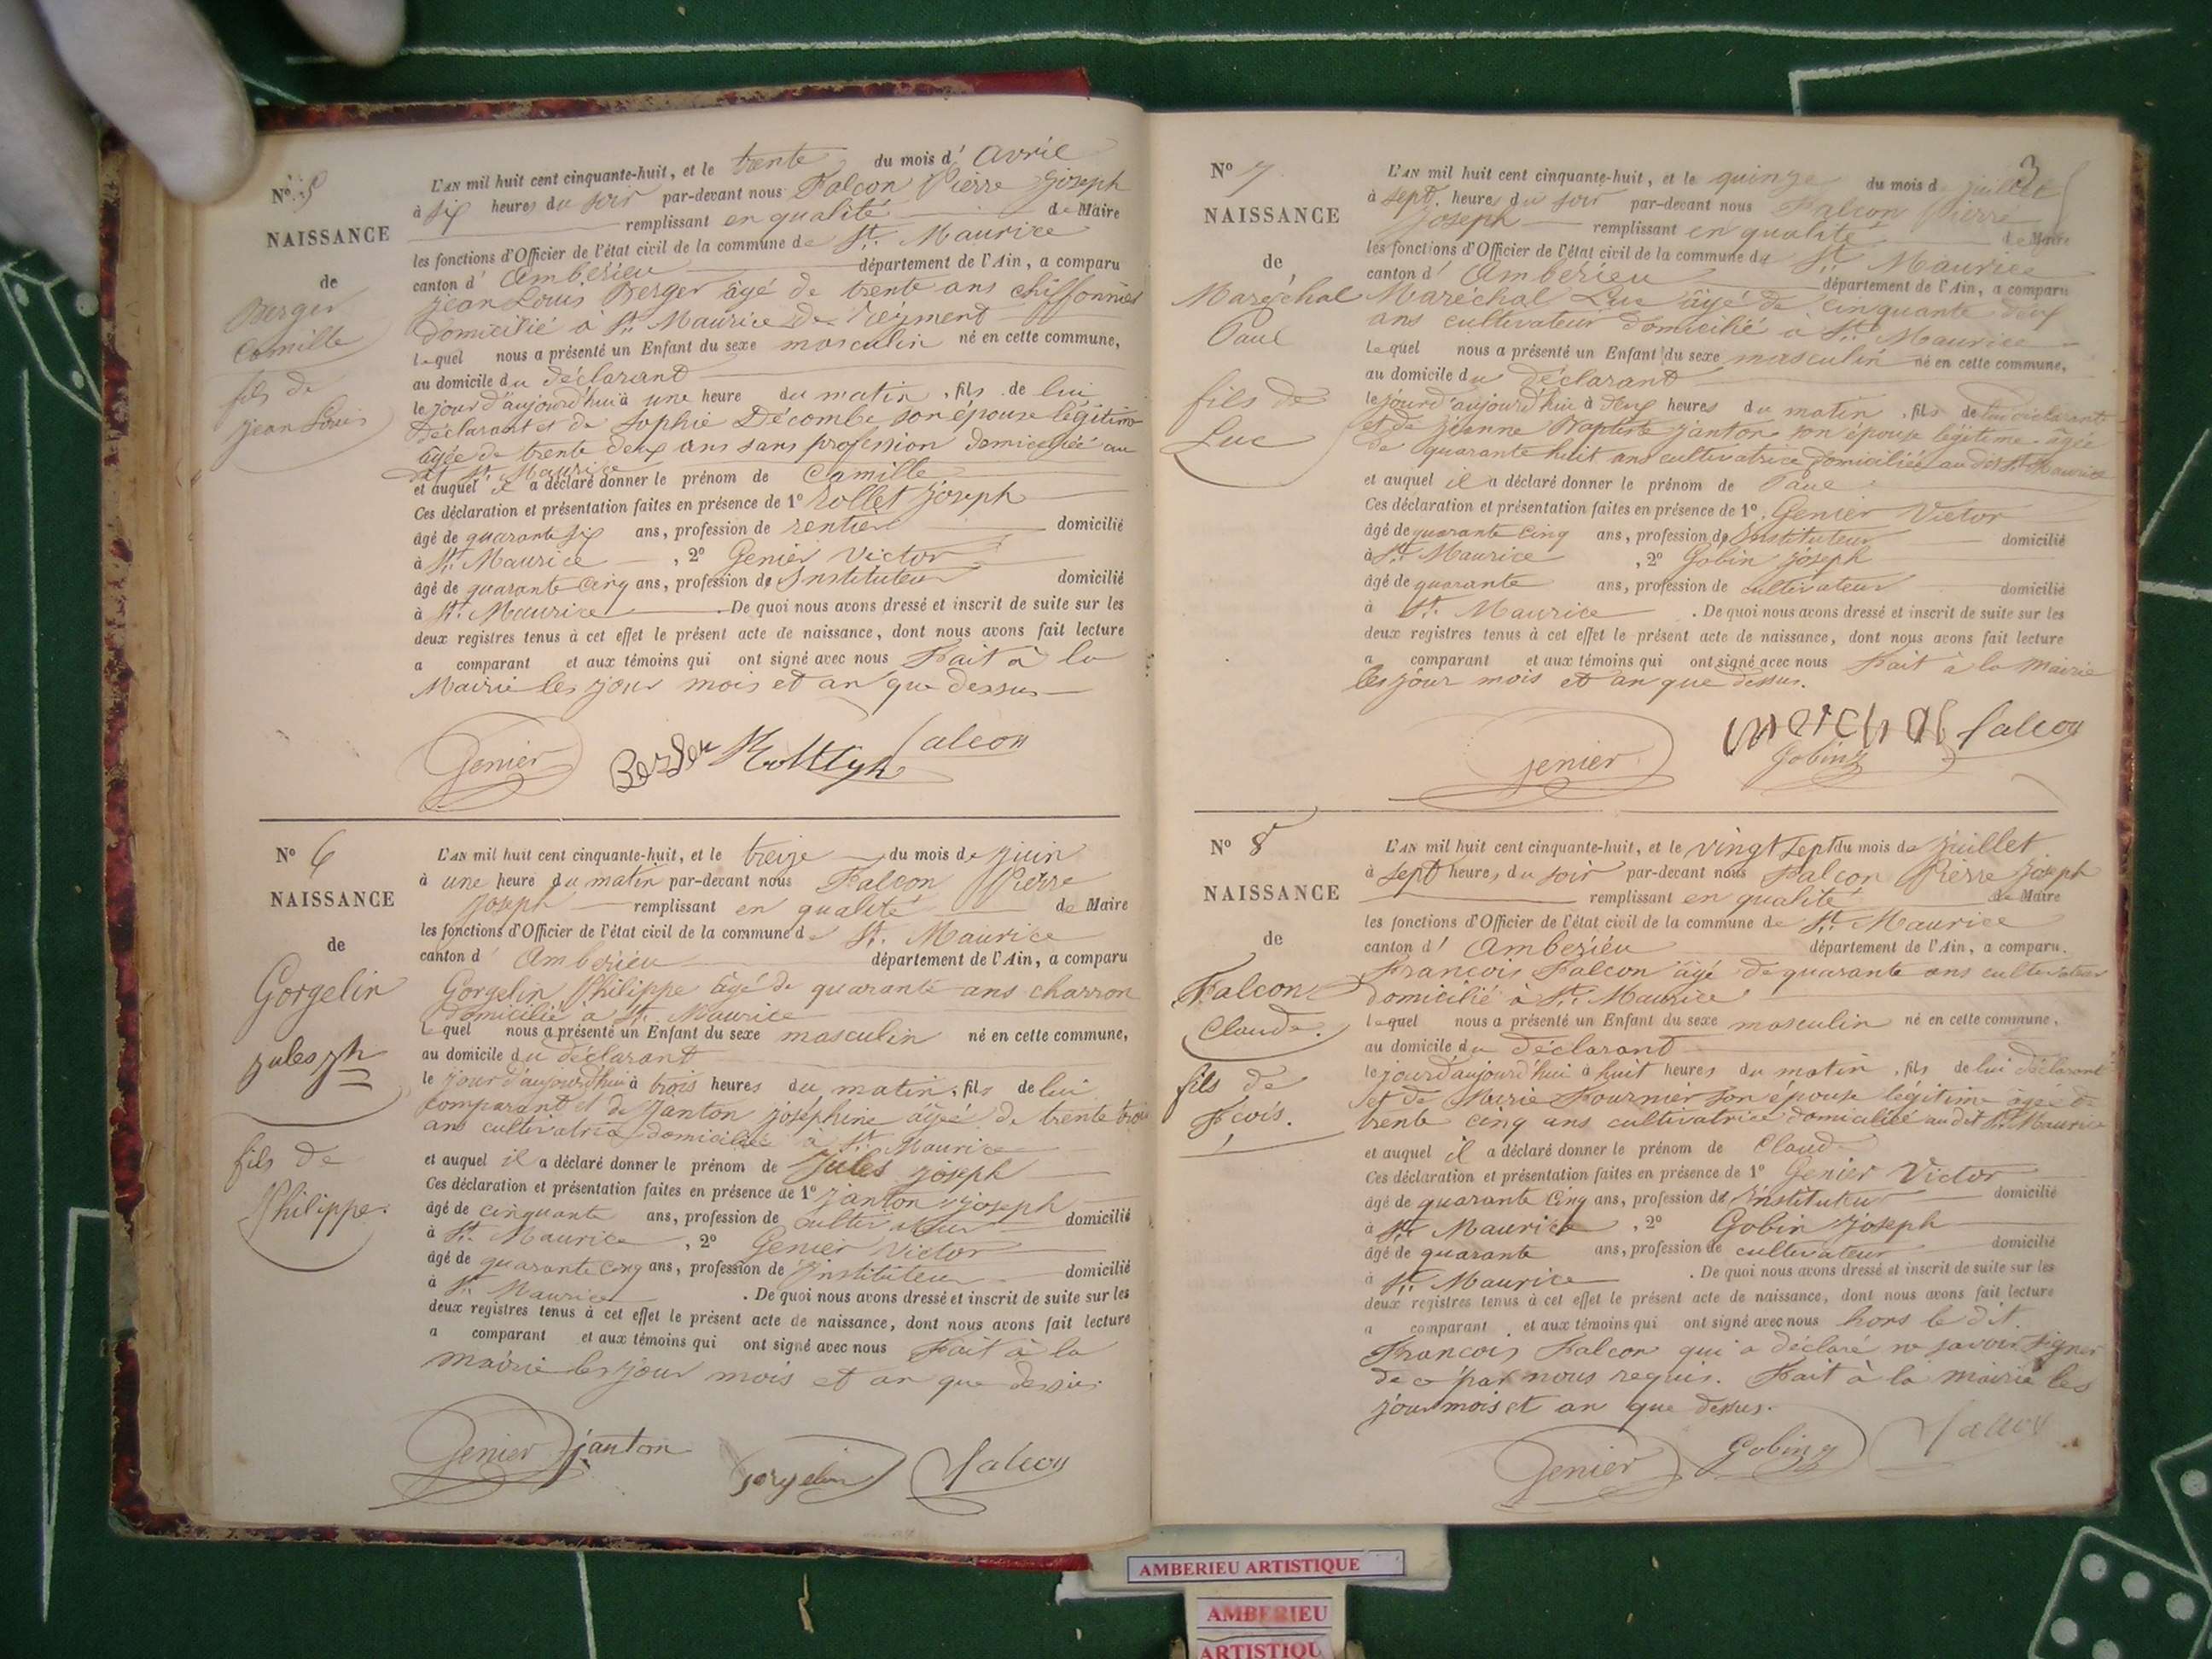 N° 5
NAISSANCE
de
Berger
Camille
fils de
Jean Louis
L'AN mil huit cent cinquante-huit, et le trente du mois d' Avril
à six heures du soir par-devant nous Falcon Pierre Joseph
remplissant en qualité de Maire
les fonctions d'Officier de l'état civil de la commune de St. Maurice
canton d' Amberieu département de l'Ain, a comparu
Jean Louis Berger âgé de trente ans chiffonnier
domicilié à St. Maurice de Reyment
lequel nous a présenté un Enfant du sexe masculin né en cette commune,
au domicile du déclarant
le jour d'aujourd'hui à une heure du matin, fils de lui
déclarant et de Sophie Décombe son épouse légitime
âgée de trente deux ans sans profession domiciliée au
dit St. Maurice
et auquel il a déclaré donner le prénom de Camille
Ces déclaration et présentation faites en présence de 1° Rollet Joseph
âgé de quarante six ans, profession de rentier domicilié
à St. Maurice, 2° Genier Victor
âgé de quarante cinq ans, profession de Instituteur domicilié
à St. Maurice. De quoi nous avons dressé et inscrit de suite sur les
deux registres tenus à cet effet le présent acte de naissance, dont nous avons fait lecture
a comparant et aux témoins qui ont signé avec nous Fait à la
Mairie les jour mois et an que dessus
Genier Berger Falcon
N° 6
NAISSANCE
de
Gorgelin
Jules Jh
fils de
Philippe.
L'AN mil huit cent cinquante-huit, et le treize du mois de juin
à une heure du matin par-devant nous Falcon Pierre
Joseph remplissant en qualité de Maire
les fonctions d'Officier de l'état civil de la commune de St. Maurice
canton d' Amberieu département de l'Ain, a comparu
Gorgelin Philippe âgé de quarante ans charron
domicilié à St. Maurice
lequel nous a présenté un Enfant du sexe masculin né en cette commune,
au domicile du déclarant
le jour d'aujourd'hui à trois heures du matin, fils de lui
comparant et de Janton Joséphine âgée de trente trois
ans cultivatrice domiciliée à St. Maurice
et auquel il a déclaré donner le prénom de Jules Joseph
Ces déclaration et présentation faites en présence de 1° Janton Joseph
âgé de cinquante ans, profession de cultivateur domicilié
à St. Maurice, 2° Genier Victor
âgé de quarante cinq ans, profession de Instituteur domicilié
à St. Maurice. De quoi nous avons dressé et inscrit de suite sur les
deux registres tenus à cet effet le présent acte de naissance, dont nous avons fait lecture
a comparant et aux témoins qui ont signé avec nous Fait à la
mairie les jour mois et an que dessus
Genier janton gorgelin falcon
3
N° 7
NAISSANCE
de
Maréchal
Paul
fils de
Luc
L'AN mil huit cent cinquante-huit, et le quinze du mois de juillet
à sept heures du soir par-devant nous Falcon Pierre
Joseph remplissant en qualité de Maire
les fonctions d'Officier de l'état civil de la commune de St. Maurice
canton d' Amberieu département de l'Ain, a comparu
Maréchal Luc âgé de cinquante deux
ans cultivateur domicilié à St. Maurice
lequel nous a présenté un Enfant du sexe masculin né en cette commune,
au domicile du déclarant
le jour d'aujourd'hui à deux heures du matin, fils de lui déclarant
et de Jeanne Baptiste Janton son épouse légitime âgée
de quarante huit ans cultivatrice domiciliée au dit St. Maurice
et auquel il a déclaré donner le prénom de Paul
Ces déclaration et présentation faites en présence de 1° Genier Victor
âgé de quarante cinq ans, profession de Instituteur domicilié
à St. Maurice, 2° Gobin Joseph
âgé de quarante ans, profession de cultivateur domicilié
à St. Maurice. De quoi nous avons dressé et inscrit de suite sur les
deux registres tenus à cet effet le présent acte de naissance, dont nous avons fait lecture
a comparant et aux témoins qui ont signé avec nous Fait à la Mairie
les jour mois et an que dessus.
Genier Gobin falcon
N° 8
NAISSANCE
de
Falcon
Claude.
fils de
Fcois.
L'AN mil huit cent cinquante-huit, et le vingt sept du mois de Juillet
à sept heures du soir par-devant nous Falcon Pierre Joseph
remplissant en qualité de Maire
les fonctions d'Officier de l'état civil de la commune de St. Maurice
canton d' Amberieu département de l'Ain, a comparu.
François Falcon âgé de quarante ans cultivateur
domicilié à St. Maurice
lequel nous a présenté un Enfant du sexe masculin né en cette commune,
au domicile du déclarant
le jour d'aujourd'hui à huit heures du matin, fils de lui déclarant
et de Marie Fournier son épouse légitime âgée de
trente cinq ans cultivatrice domiciliée au dit St. Maurice
et auquel il a déclaré donner le prénom de Claude
Ces déclaration et présentation faites en présence de 1° Genier Victor
âgé de quarante cinq ans, profession de Instituteur domicilié
à St. Maurice, 2° Gobin Joseph
âgé de quarante ans, profession de cultivateur domicilié
à St. Maurice. De quoi nous avons dressé et inscrit de suite sur les
deux registres tenus à cet effet le présent acte de naissance, dont nous avons fait lecture
a comparant et aux témoins qui ont signé avec nous hors le dit
François Falcon qui a déclaré ne savoir signer
de ce par nous requis. Fait à la mairie les
jour mois et an que dessus.
Genier Gobin falcon
AMBERIEU ARTISTIQUE
AMBERIEU
ARTISTIQU